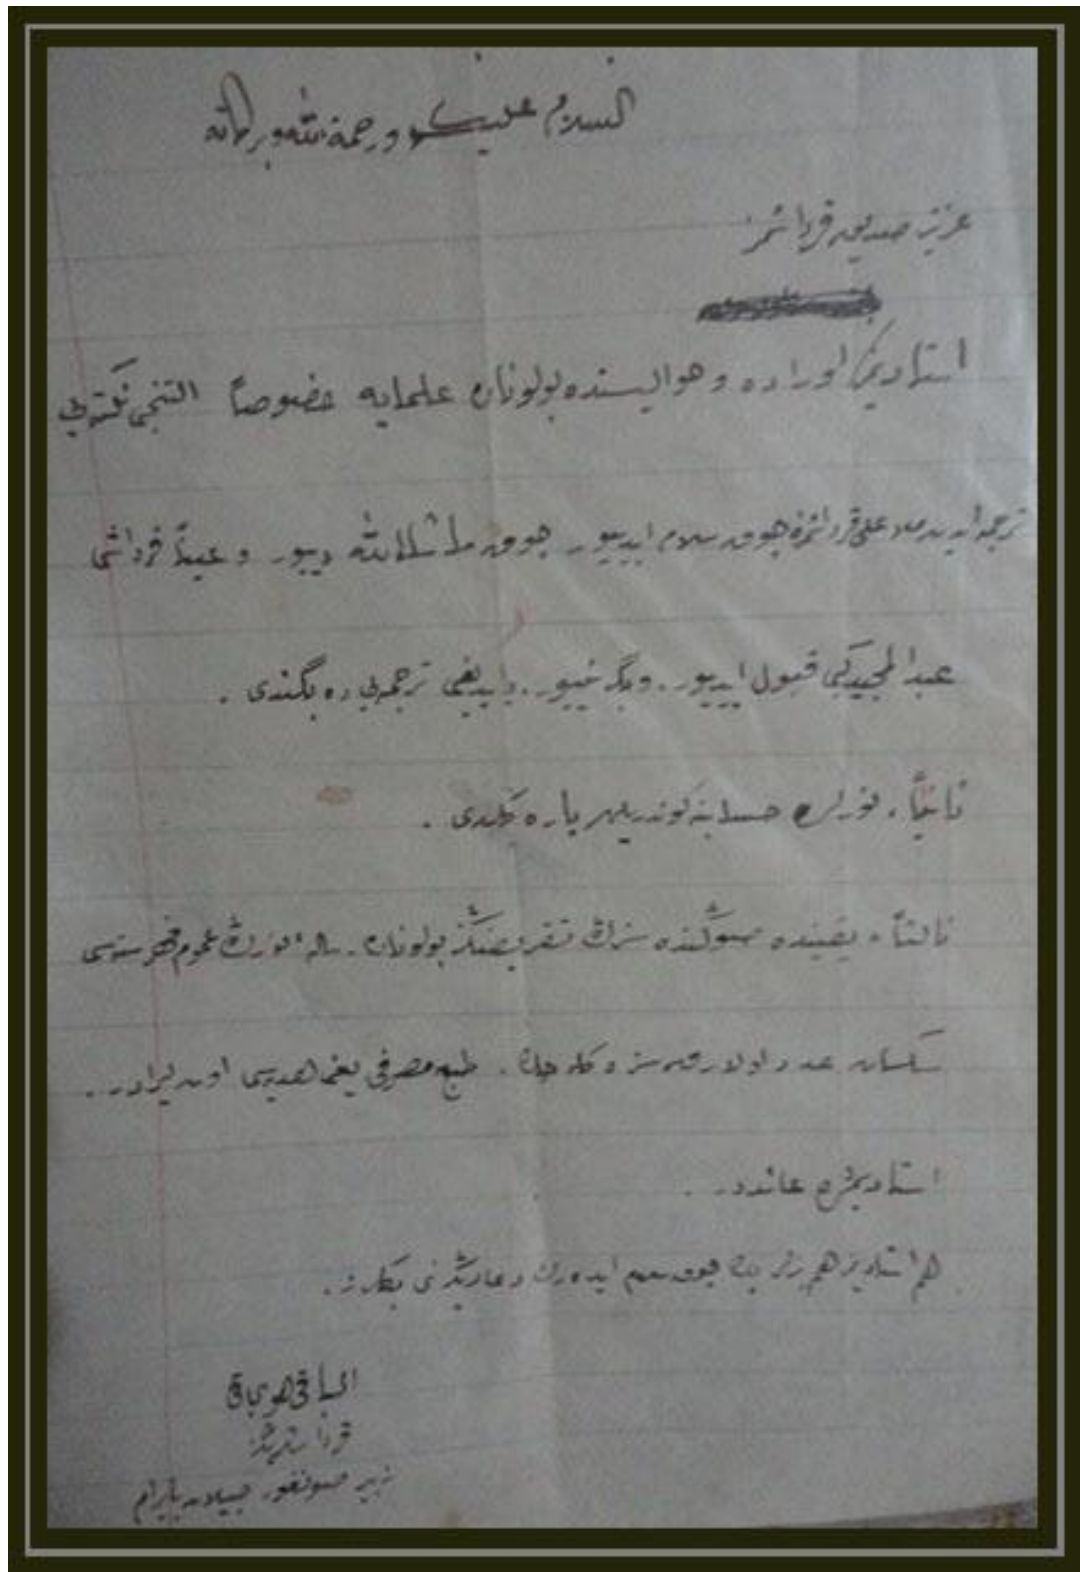 السلام عليكم ورحمة الله وبركاته
عزيز صديق قرداشمز
استاديمز اوراده و حواليسنده بولونان علمايه خصوصاً التنجى نكته يى
ترجمه ايدن ملا على قرداشمزه چوق سلام ايدييور. چوق ماشاالله دييور و عيناً قرداشى
عبد المجيد كبى قبول ايدييور. و ترجمه يى ده بگندى.
ثانياً، نورلرڭ حسابنه كوندريلن پاره كلدى.
ثالثاً، يقينده سزڭ بولونان رساله النورڭ
سكسان عدد اولارق سزه كله جك. طبع مصرفى يعنى هديه سى اون ليرادر.
استاديمزه عائددر.
هم استاديمز هم بزلر چوق سلام ايدەرك دعاڭزى بكلرز.
الباقى هو الباقى
قرداشلريڭز
زبير صونغور جيلان بايرام